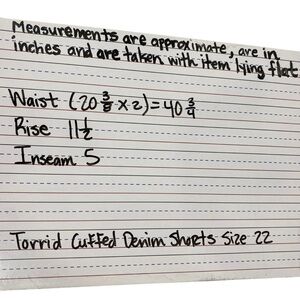 Measurements are approximate, are in
inches and are taken with item lying flat
Waist (20 3/8 x 2) = 40 3/4
Rise 11 1/2
Inseam 5
Torrid Cuffed Denim Shorts Size 22